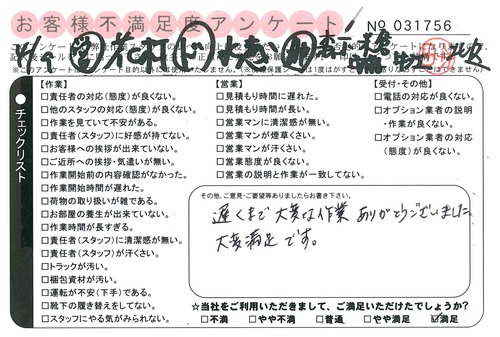 お客様不満足度アンケート
No 031756
チェックリスト
【作業】
□責任者の対応(態度)が良くない。
□他のスタッフの対応(態度)が良くない。
□作業を見ていて不安がある。
□責任者(スタッフ)に好感が持てない。
□お客様への挨拶が出来ていない。
□ご近所への挨拶・気遣いが無い。
□作業開始前の内容確認がなかった。
□作業開始時間が遅れた。
□荷物の取り扱いが雑である。
□お部屋の養生が出来ていない。
□作業時間が長すぎる。
□責任者(スタッフ)に清潔感が無い。
□責任者(スタッフ)が汗くさい。
□トラックが汚い。
□梱包資材が汚い。
□運転が不安(下手)である。
□靴下の履き替えをしていない。
□スタッフにやる気がみられない。
【営業】
□見積もり時間に遅れた。
□見積もり時間が長い。
□営業マンに清潔感が無い。
□営業マンが煙草くさい。
□営業マンが汗くさい。
□営業態度が良くない。
□営業の説明と作業が一致してない。
【受付・その他】
□電話の対応が良くない。
□オプション業者の説明
・作業が良くない。
□オプション業者の対応
(態度)が良くない。
その他、ご意見・ご要望等ありましたらお書き下さい。
遅くまで大変な作業ありがとうございました
大変満足です。
☆当社をご利用いただきまして、ご満足いただけたでしょうか?
□不満 □やや不満 □普通 □やや満足 ☑満足